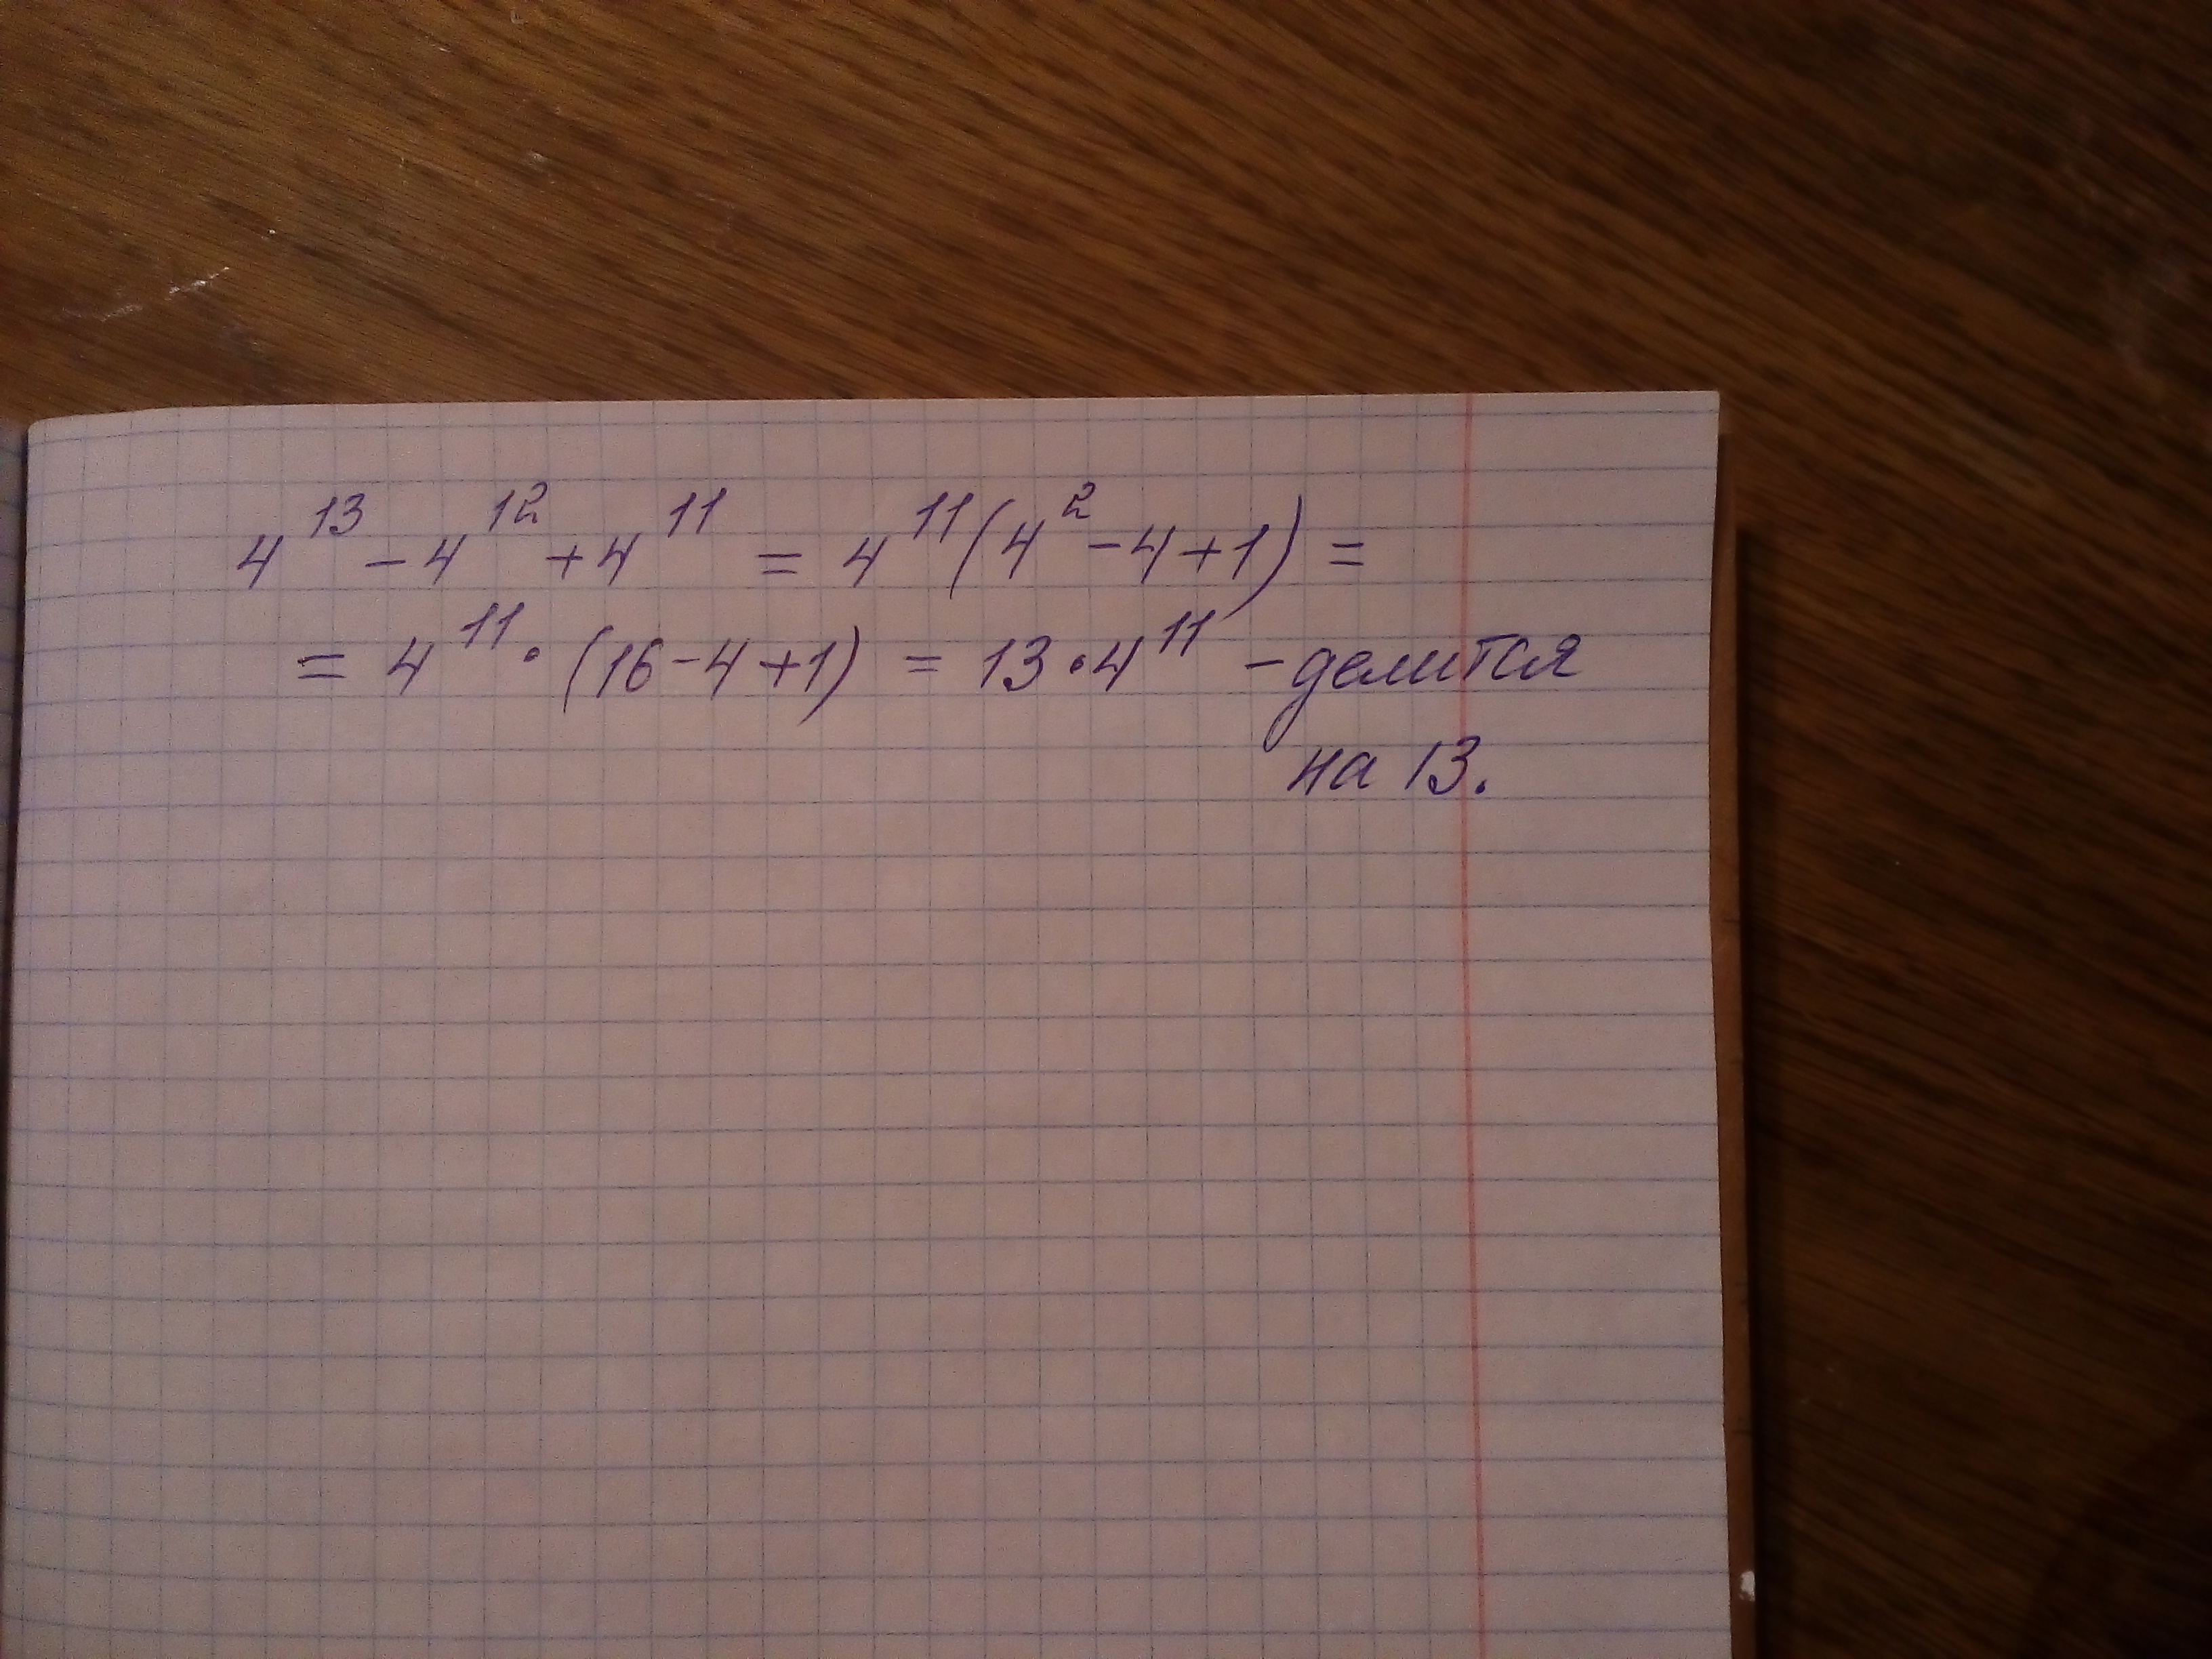 4¹³ - 4¹² + 4¹¹ = 4¹¹(4² - 4 + 1) =
= 4¹¹ · (16 - 4 + 1) = 13 · 4¹¹ - делится
на 13.